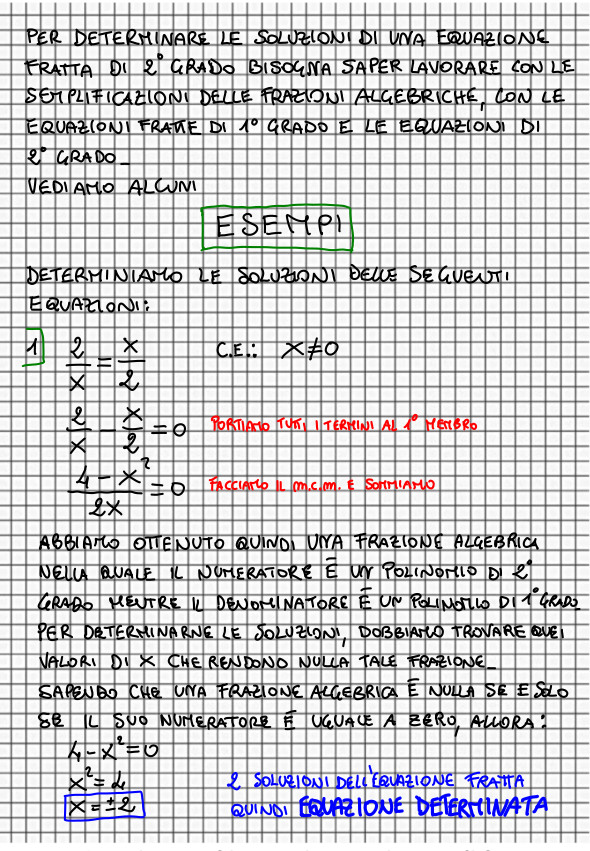 PER DETERMINARE LE SOLUZIONI DI UNA EQUAZIONE
FRATTA DI 2° GRADO BISOGNA SAPER LAVORARE CON LE
SEMPLIFICAZIONI DELLE FRAZIONI ALGEBRICHE, CON LE
EQUAZIONI FRATTE DI 1° GRADO E LE EQUAZIONI DI
2° GRADO_
VEDIAMO ALCUNI
ESEMPI
DETERMINIAMO LE SOLUZIONI DELLE SEGUENTI
EQUAZIONI:
1 2/x = x/2 C.E.: x≠0
2/x - x/2 = 0 PORTIAMO TUTTI I TERMINI AL 1° MEMBRO
(4-x²)/2x = 0 FACCIAMO IL m.c.m. E SOMMIAMO
ABBIAMO OTTENUTO QUINDI UNA FRAZIONE ALGEBRICA
NELLA QUALE IL NUMERATORE È UN POLINOMIO DI 2°
GRADO MENTRE IL DENOMINATORE È UN POLINOMIO DI 1° GRADO
PER DETERMINARNE LE SOLUZIONI, DOBBIAMO TROVARE QUEI
VALORI DI X CHE RENDONO NULLA TALE FRAZIONE_
SAPENDO CHE UNA FRAZIONE ALGEBRICA È NULLA SE E SOLO
SE IL SUO NUMERATORE È UGUALE A ZERO, ALLORA:
4-x²=0
x²=4 2 SOLUZIONI DELL'EQUAZIONE FRATTA
x=±2 QUINDI EQUAZIONE DETERMINATA